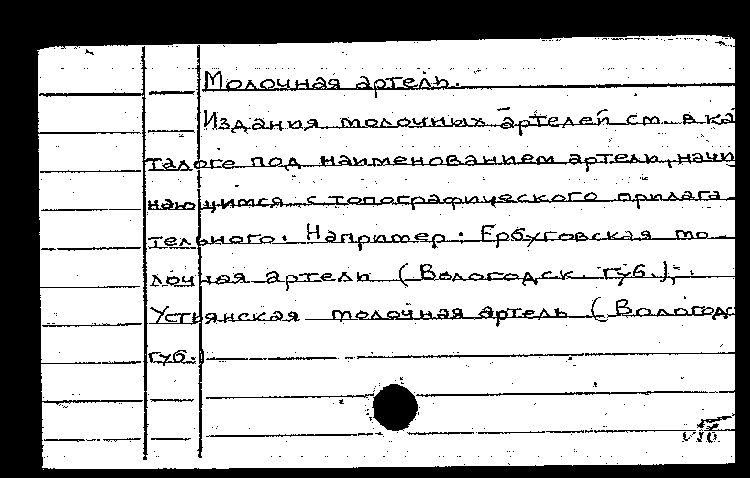 Молочная артель.
Издания молочных артелей см. в ка
талоге под наименованием артели, начи
нающимся с топографического прилага-
тельного. Например: Ербуговская мо-
лочная артель (Вологодск. губ.);
Устьянская молочная артель (Вологодс
губ.)